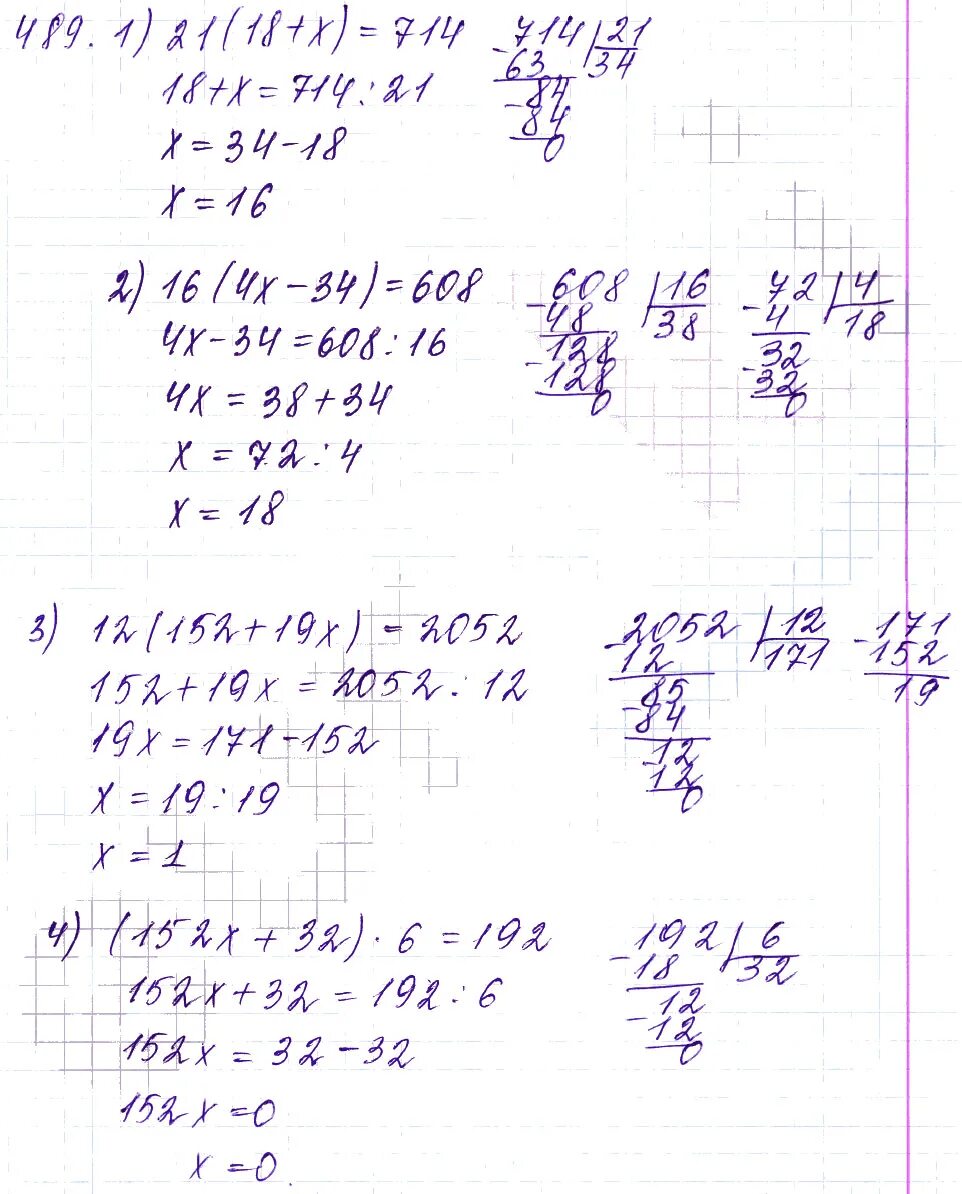 489. 1) 21(18+x) = 714
18+x = 714 : 21
x = 34 - 18
x = 16
-714 | 21
63 34
-84
84
0
2) 16(4x - 34) = 608
4x - 34 = 608 : 16
4x = 38 + 34
x = 72 : 4
x = 18
-608 | 16
48 38
-128
128
0
-72 | 4
4 18
-32
32
0
3) 12(152 + 19x) = 2052
152 + 19x = 2052 : 12
19x = 171 - 152
x = 19 : 19
x = 1
-2052 | 12
12 171
-85
84
-12
12
0
-171
152
19
4) (152x + 32) · 6 = 192
152x + 32 = 192 : 6
152x = 32 - 32
152x = 0
x = 0.
-192 | 6
18 32
-12
12
0